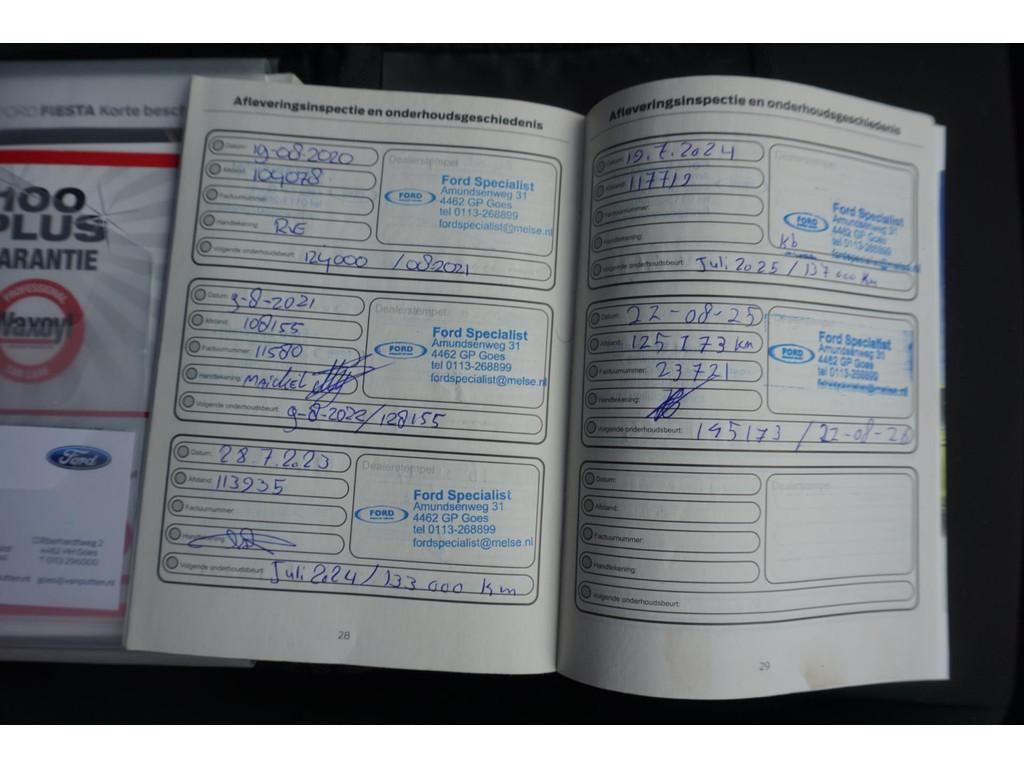 FORD FIESTA Korte besch
100
PLUS
ARANTIE
PROFESSIONAL
Ford
4462 HH Goes
Afleveringsinspectie en onderhoudsgeschiedenis
Datum: 19-08-2020
Afstand: 104078
Factuurnummer:
Handtekening: RvE
Volgende onderhoudsbeurt: 124000 / 08 2021
Dealerstempel
FORD
Ford Specialist
Amundsenweg 31
4462 GP Goes
tel 0113-268899
fordspecialist@melse.nl
Datum: 9-8-2021
Afstand: 108155
Factuurnummer: 11580
Handtekening: Maickel
Volgende onderhoudsbeurt: 9-8-2022/128155
Dealerstempel
FORD
Ford Specialist
Amundsenweg 31
4462 GP Goes
tel 0113-268899
fordspecialist@melse.nl
Datum: 28.7.2023
Afstand: 113935
Factuurnummer:
Handtekening:
Volgende onderhoudsbeurt: Juli 2024/133 000 Km
Dealerstempel
FORD
Ford Specialist
Amundsenweg 31
4462 GP Goes
tel 0113-268899
fordspecialist@melse.nl
28
Afleveringsinspectie en onderhoudsgeschiedenis
Datum: 19.7.2024
Afstand: 117719
Factuurnummer:
Handtekening:
Volgende onderhoudsbeurt: Juli 2025/137 000 Km
Dealerstempel
FORD
Ford Specialist
Amundsenweg 31
4462 GP Goes
tel 0113-268899
fordspecialist@melse.nl
Kb
Datum: 22-08-25
Afstand: 125173 km
Factuurnummer: 23721
Handtekening:
Volgende onderhoudsbeurt: 145173 / 22-08-26
FORD
Ford Specialist
Amundsenweg 31
4462 GP Goes
tel 0113-268899
fordspecialist@melse.nl
Datum:
Afstand:
Factuurnummer:
Handtekening:
Volgende onderhoudsbeurt:
Dealerstempel
29